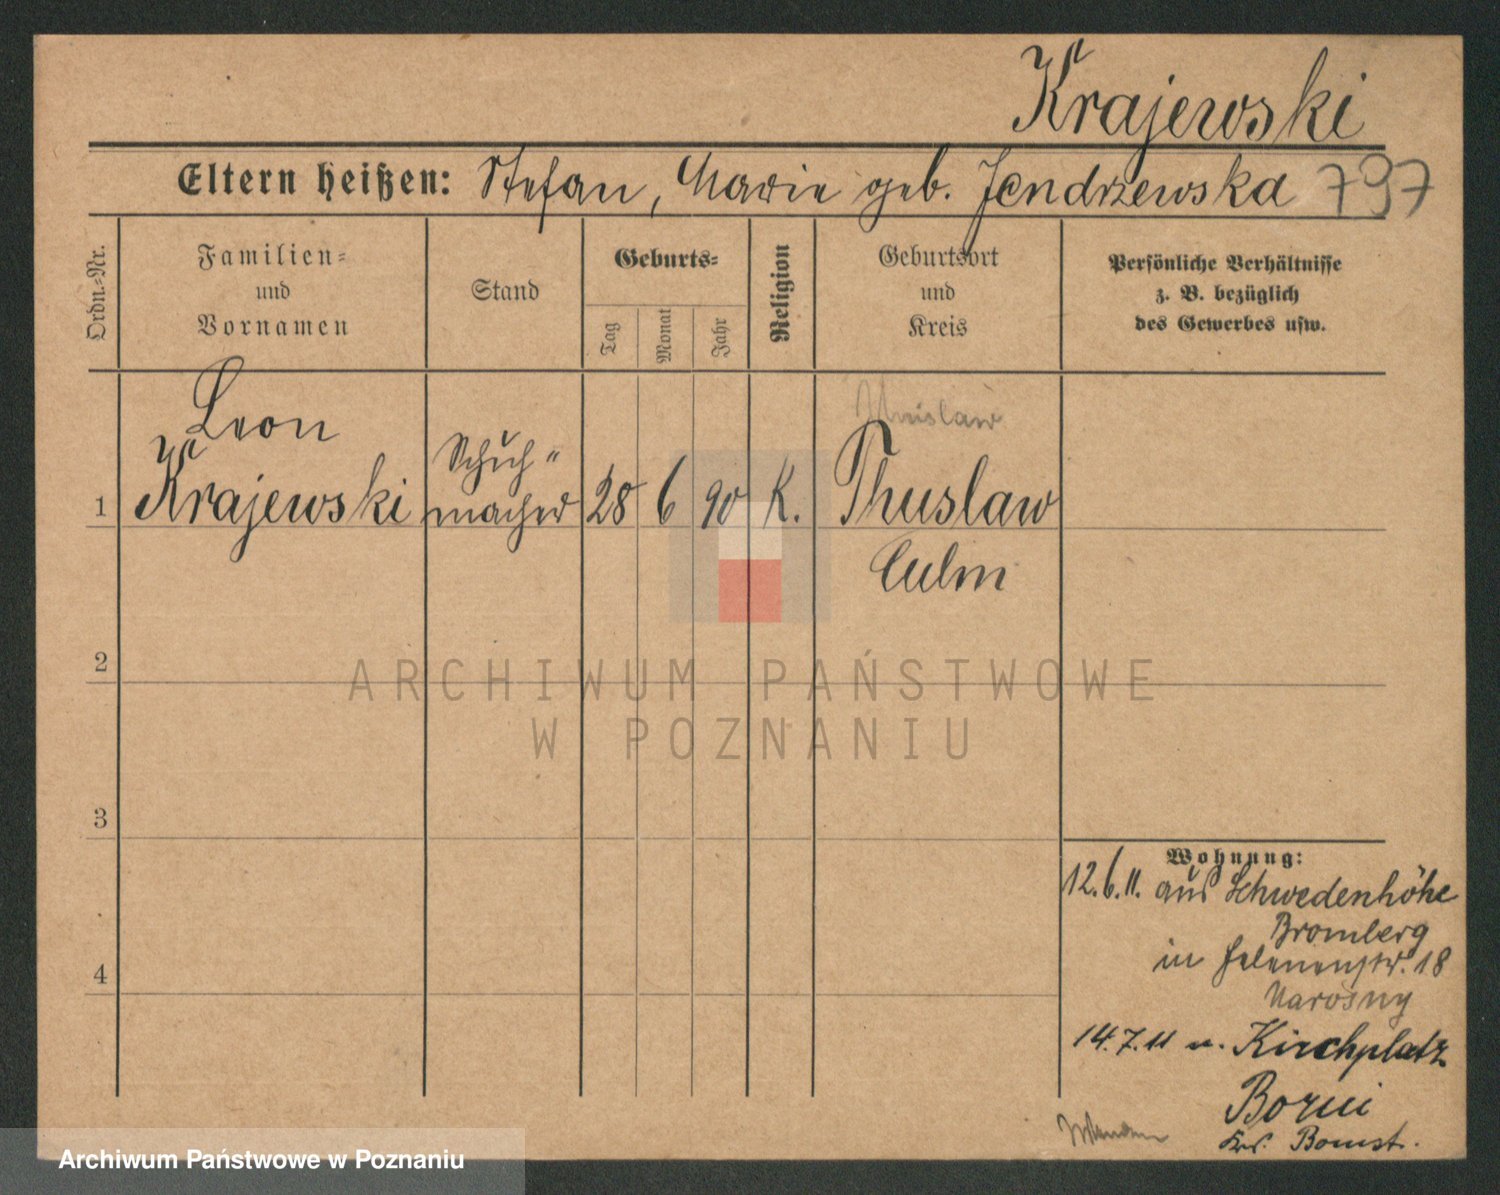 Krajewski
Eltern heißen: Stefan, Marie geb. Jendrzewska 797
Ordn.-Nr.
Familien- und Vornamen
Stand
Geburts-
Tag
Monat
Jahr
Religion
Geburtsort und Kreis
Persönliche Verhältnisse
z. B. bezüglich
des Gewerbes usw.
Leon
Krajewski
Schuh-
macher
1
28 6 90 K.
Thuslaw
Culm
2
3
4
ARCHIWUM PAŃSTWOWE
W POZNANIU
Wohnung:
12.6.11. aus Schwedenhöhe
Bromberg
in Helenenstr. 18
Narosny
14.7.11 n. Kirchplatz
Borui
Krs. Bomst.
Archiwum Państwowe w Poznaniu